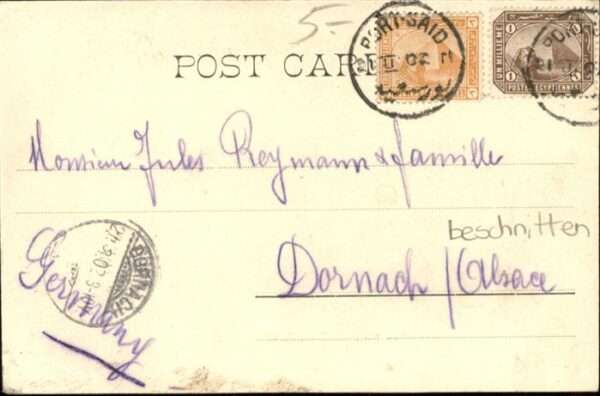 5.-
PORT-SAID
POST CAR
UN MILLIEME
1 1
POSTES EGYPTIENNES
Monsieur Jules Reymann & famille
beschnitten
DORNACH
Germany
Dornach / Alsace